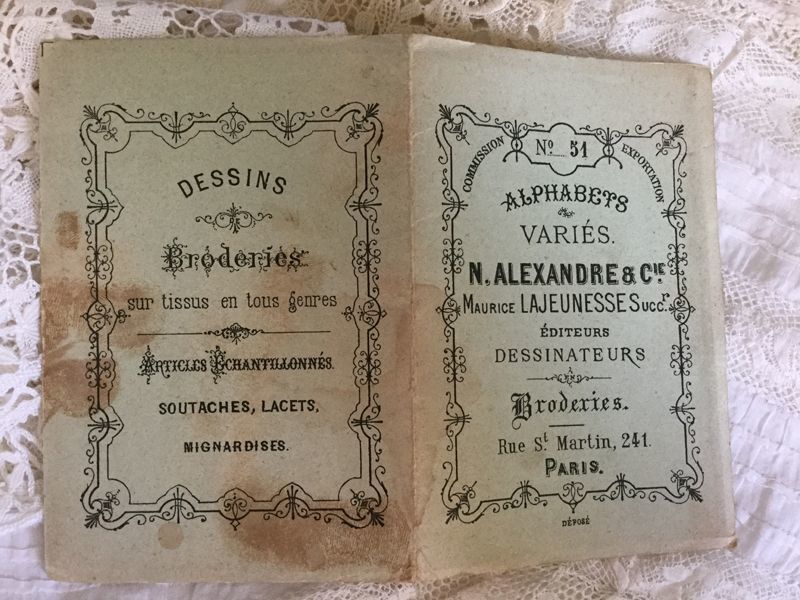 DESSINS
Broderies
sur tissus en tous genres
ARTICLES ÉCHANTILLONNÉS.
SOUTACHES, LACETS,
MIGNARDISES.
COMMISSION
No. 51
EXPORTATION
ALPHABETS
VARIÉS.
N. ALEXANDRE & CIE
MAURICE LAJEUNESSE Succr.
ÉDITEURS
DESSINATEURS
À
Broderies.
Rue St. Martin, 241.
PARIS.
DÉPOSÉ